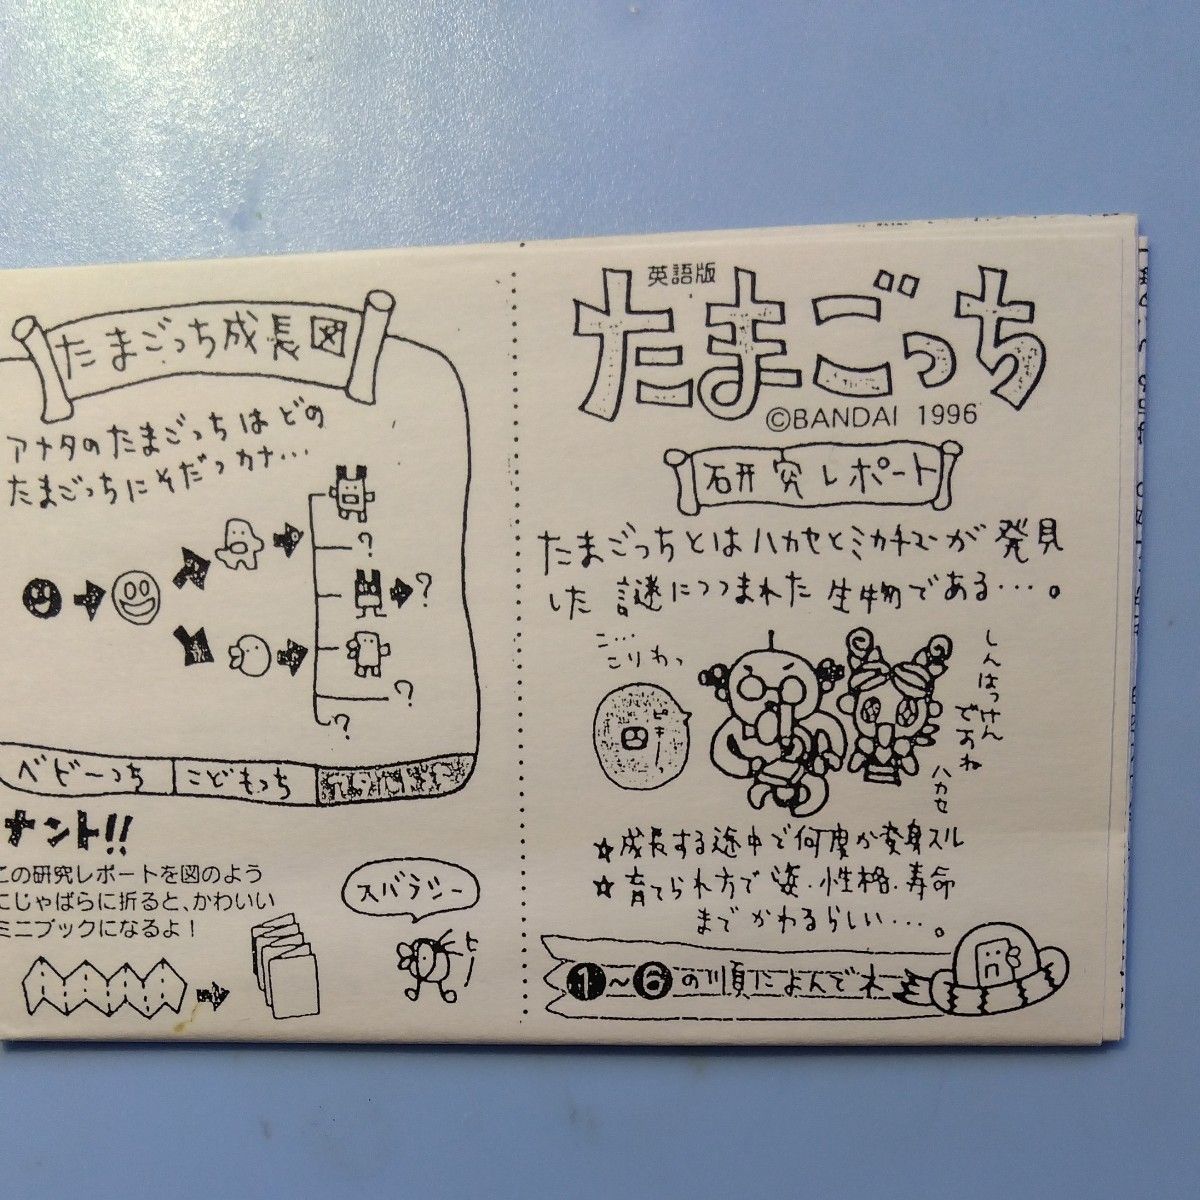 英語版
たまごっち
©BANDAI 1996
研究レポート
たまごっちとはハカセとミカチューが発見
した謎につつまれた生物である…。
こ…
こりわっ
ピキー
しんはっけん
ですね
ハカセ
☆成長する途中で何度か変身スル
☆育てられ方で姿・性格・寿命
までかわるらしい…。
1～6の順によんでネ
たまごっち成長図
アナタのたまごっちはどの
たまごっちにそだつカナ…
?
?
?
?
ベビーっち
こどもっち
ナント!!
この研究レポートを図のよう
にじゃばらに折ると、かわいい
ミニブックになるよ!
スバラシー
ヒー